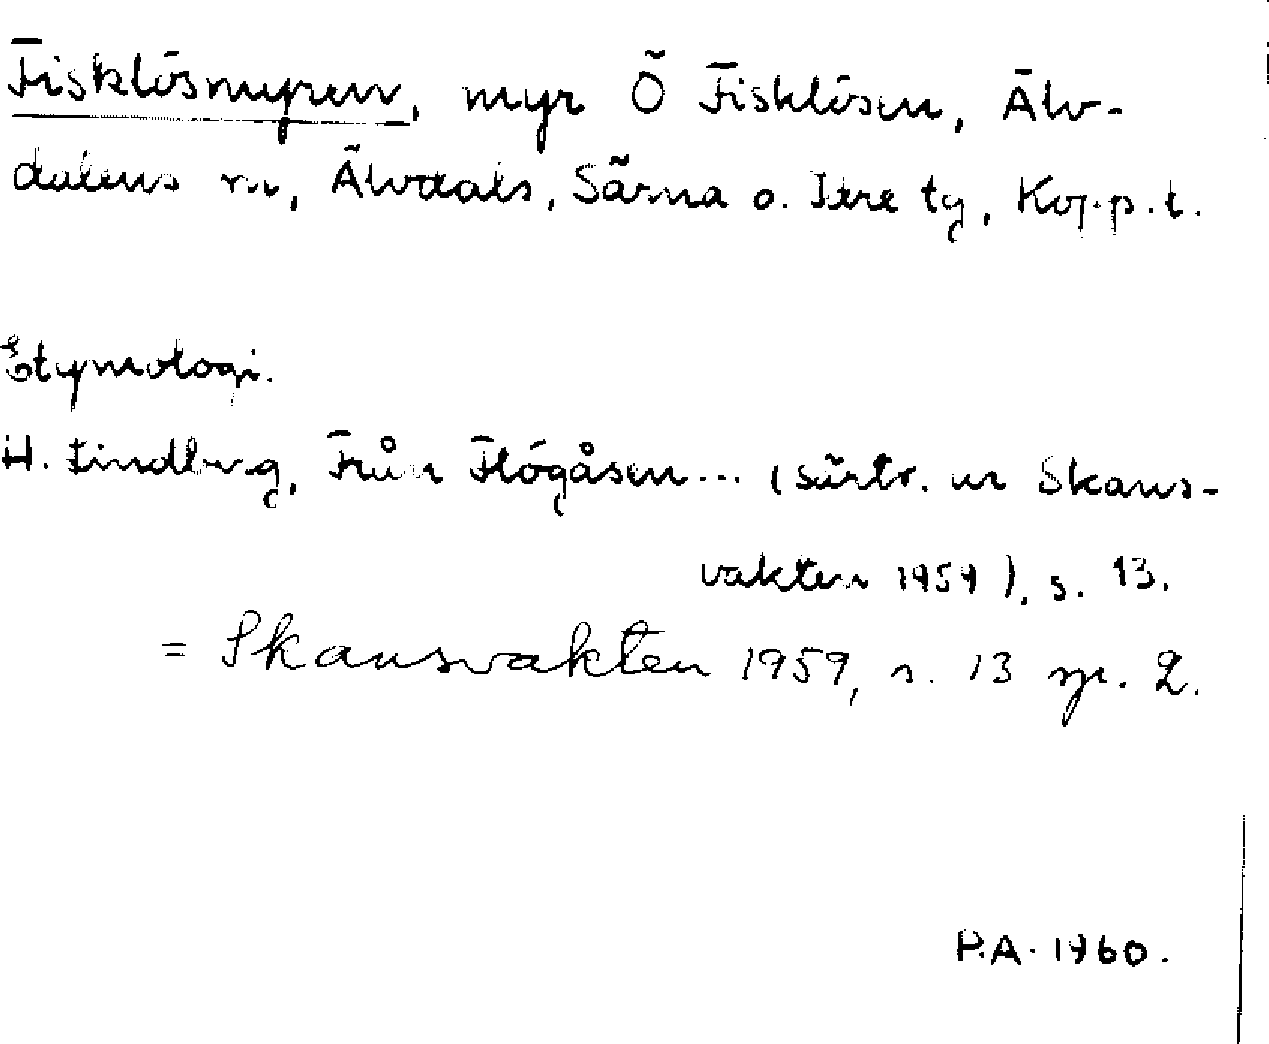 Fisklösmyren, myr Ö Fisklösen, Älv-
dalens rv, Älvdals, Särna o. Idre tg, Kopp. l.
Etymologi.
H. Lindberg, Från Flögåsen... (särtr. ur Skans-
vakten 1959), s. 13.
= Skansvakten 1959, s. 13 sp. 2.
P.A. 1960.